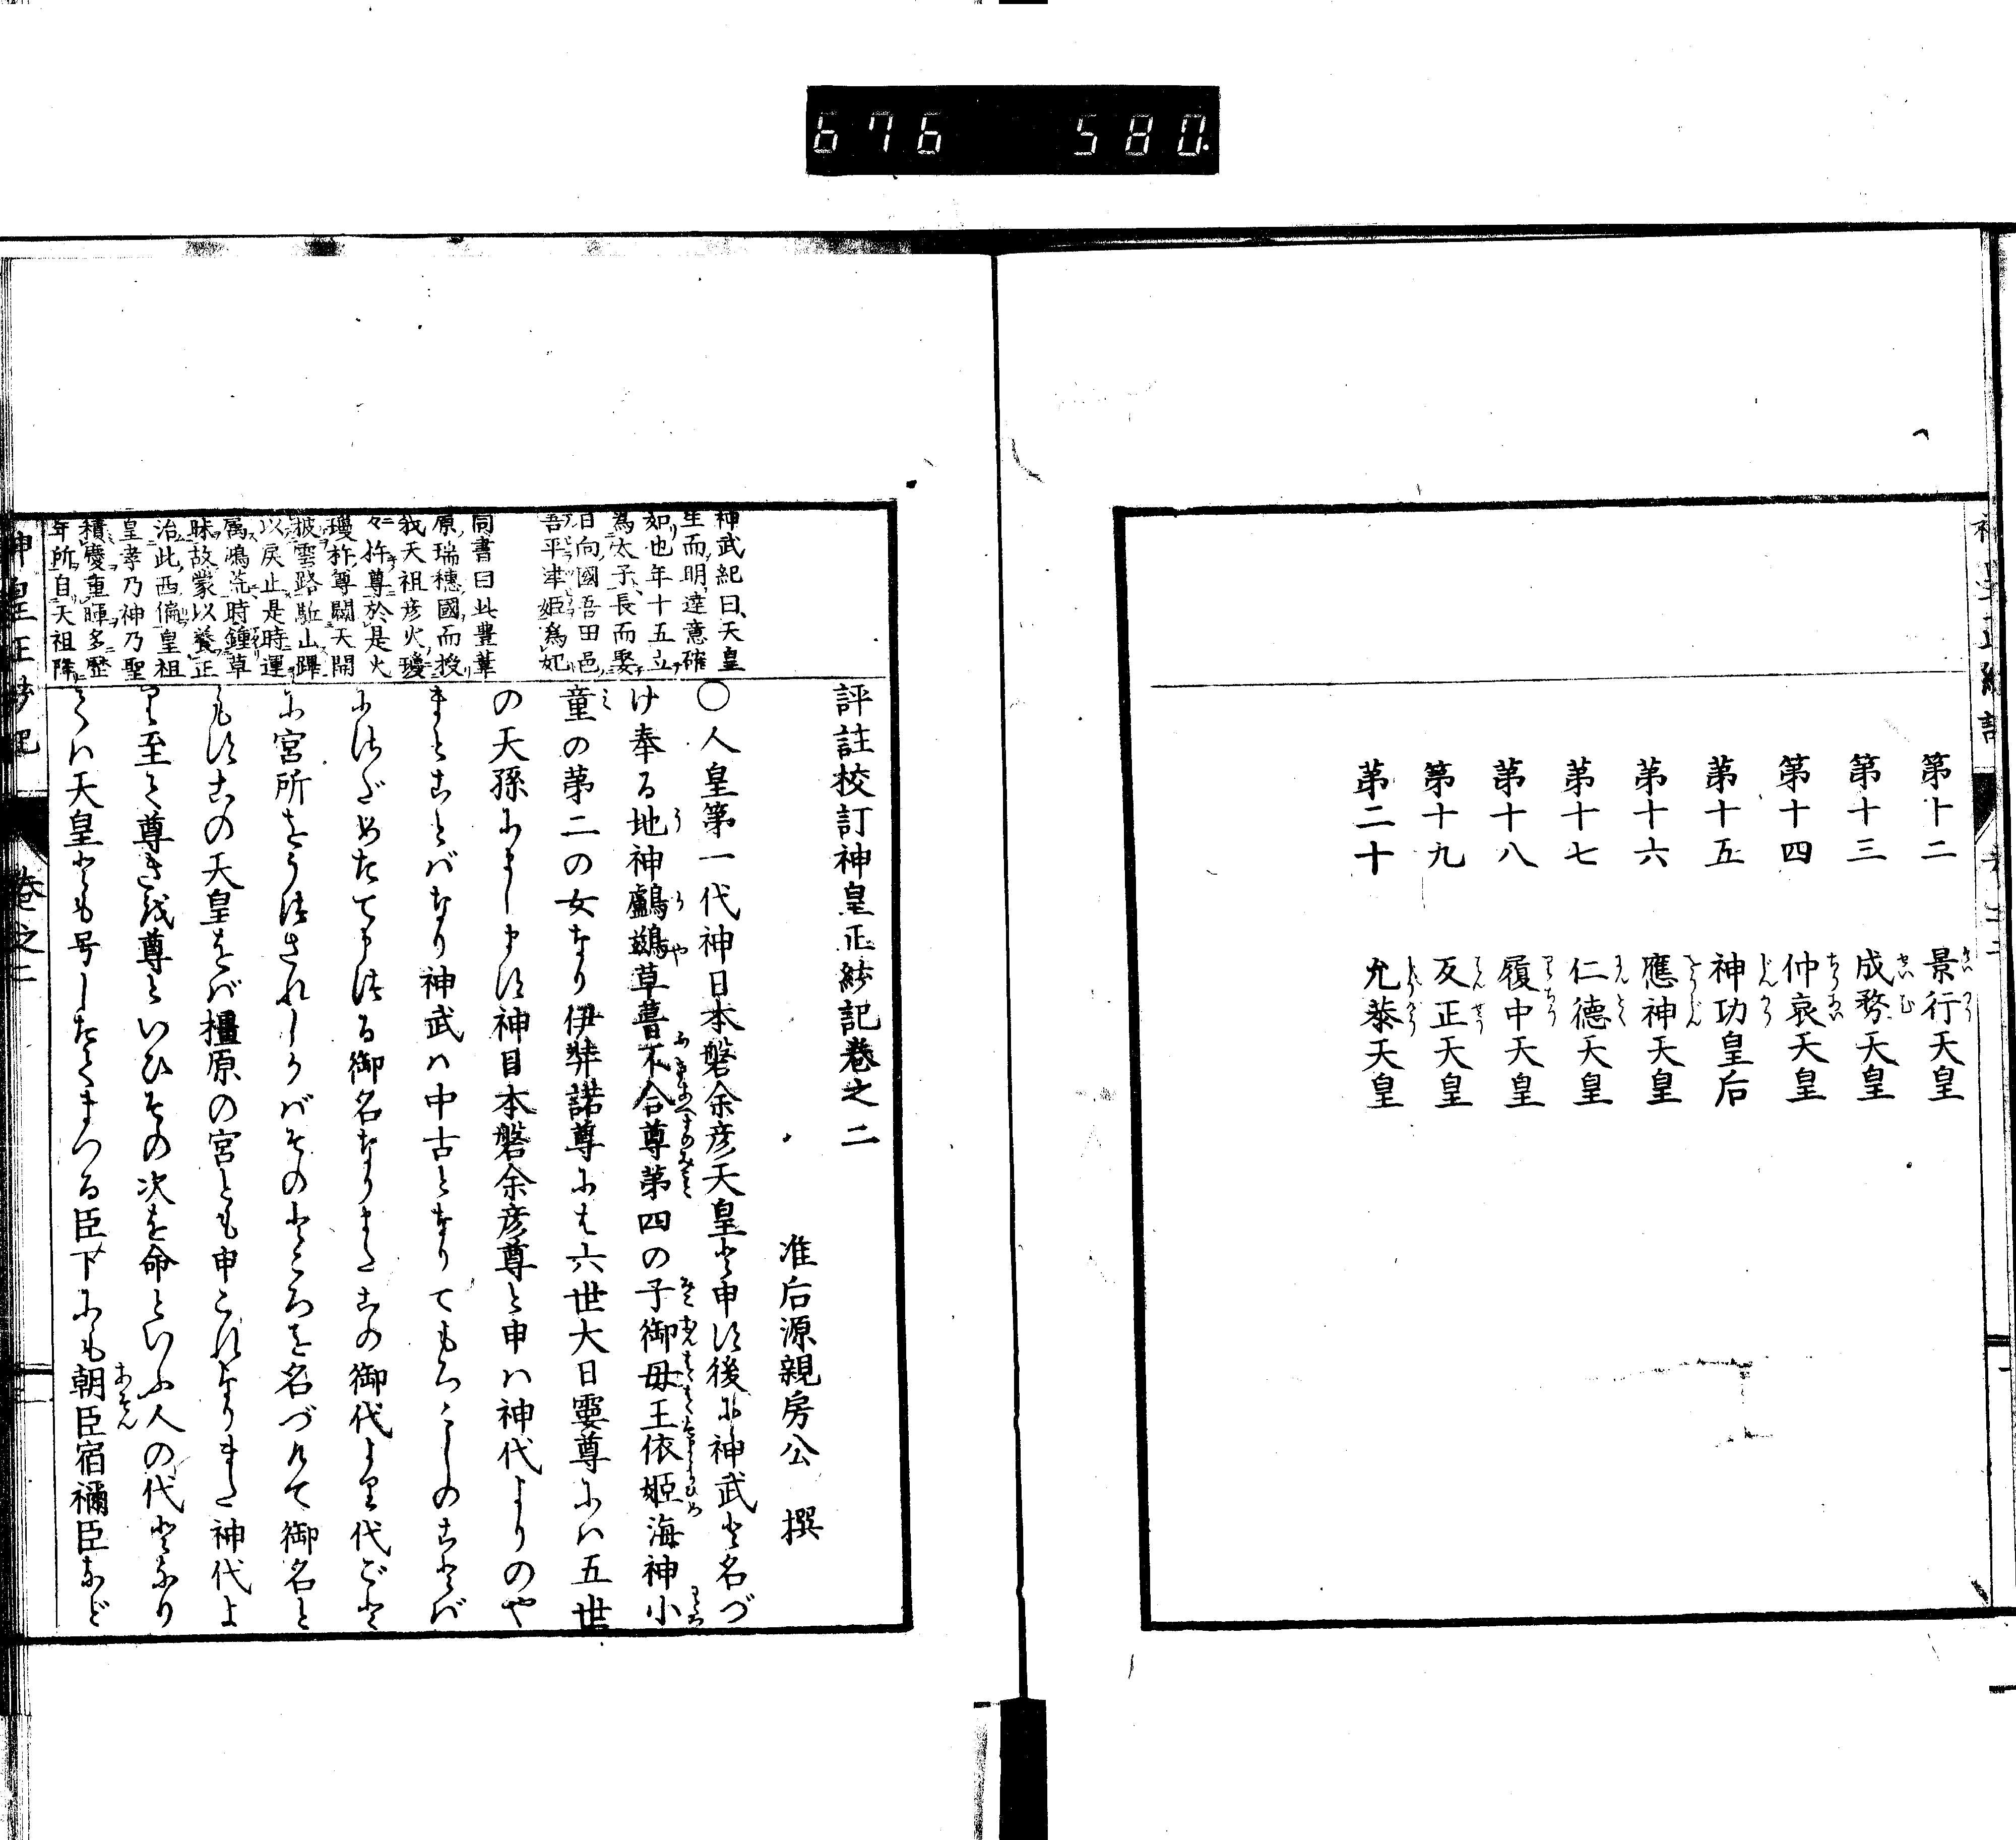 676 580
第十二 景行天皇
第十三 成務天皇
第十四 仲哀天皇
第十五 神功皇后
第十六 應神天皇
第十七 仁德天皇
第十八 履中天皇
第十九 反正天皇
第二十 允恭天皇
評註校訂神皇正統記巻之二
准后源親房公 撰
神武紀曰、天皇
生而明達意確
如也年十五立
爲太子長而娶
日向國吾田邑
吾平津姫爲妃
同書曰此豊葦
原瑞穂國而授
我天祖彦火瓊
々杵尊於是火
瓊杵尊闢天開
披雲路駈山蹕
以戻止是時運
属鴻荒時鍾草
昧故蒙以養正
治此西偏皇祖
皇孝乃神乃聖
積慶重暉多歴
年所自天祖降
○人皇第一代神日本磐余彦天皇と申す後に神武と名づ
け奉る地神鸕鷀草葺不合尊第四の子御母王依姫海神小
童の第二の女なり伊弉諾尊には六世大日孁尊には五世
の天孫にまします神日本磐余彦尊と申は神代よりのや
まとことばなり神武は中古となりてもろこしのことば
につだめたてまつる御名なりまたこの御代より代ごと
に宮所をうつされしかばそのところを名づけて御名と
もすこの天皇をば橿原の宮とも申これよりまた神代よ
り至て尊きを尊といひその次を命といふ人の代となり
ては天皇とも号したてまつる臣下にも朝臣宿禰臣など
神皇正統記 巻之二